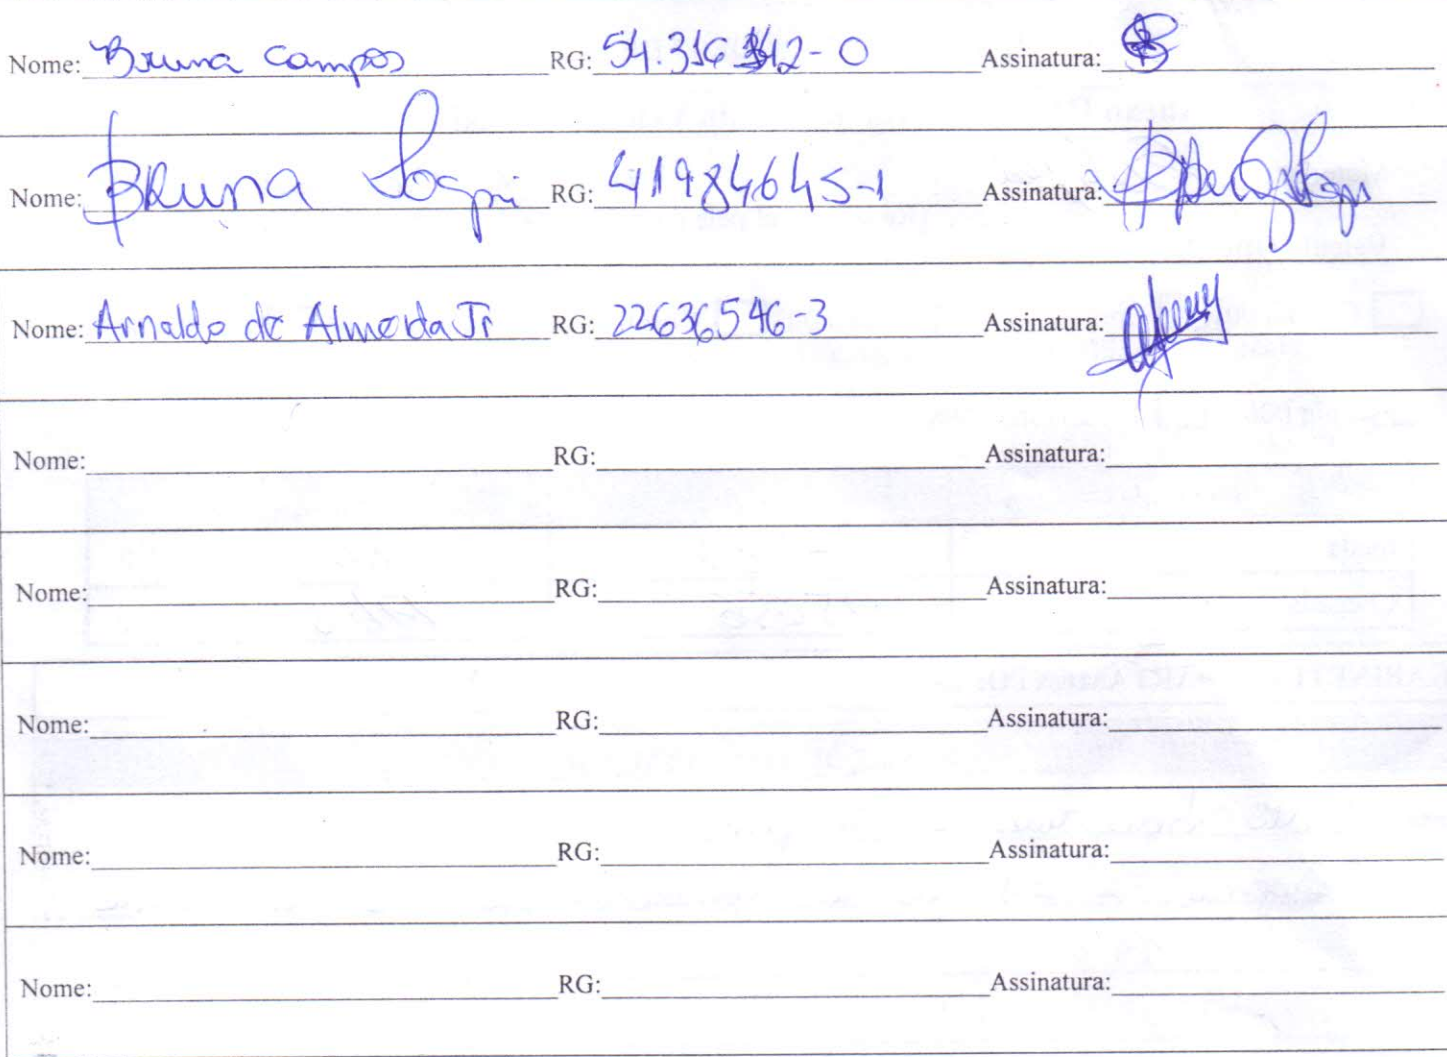 Nome: Bruna Campos RG: 54.316.342-0 Assinatura:
Nome: Bruna RG: 41984645-1 Assinatura:
Nome: Arnaldo de Almeida Jr RG: 22636546-3 Assinatura:
Nome: RG: Assinatura:
Nome: RG: Assinatura:
Nome: RG: Assinatura:
Nome: RG: Assinatura:
Nome: RG: Assinatura: